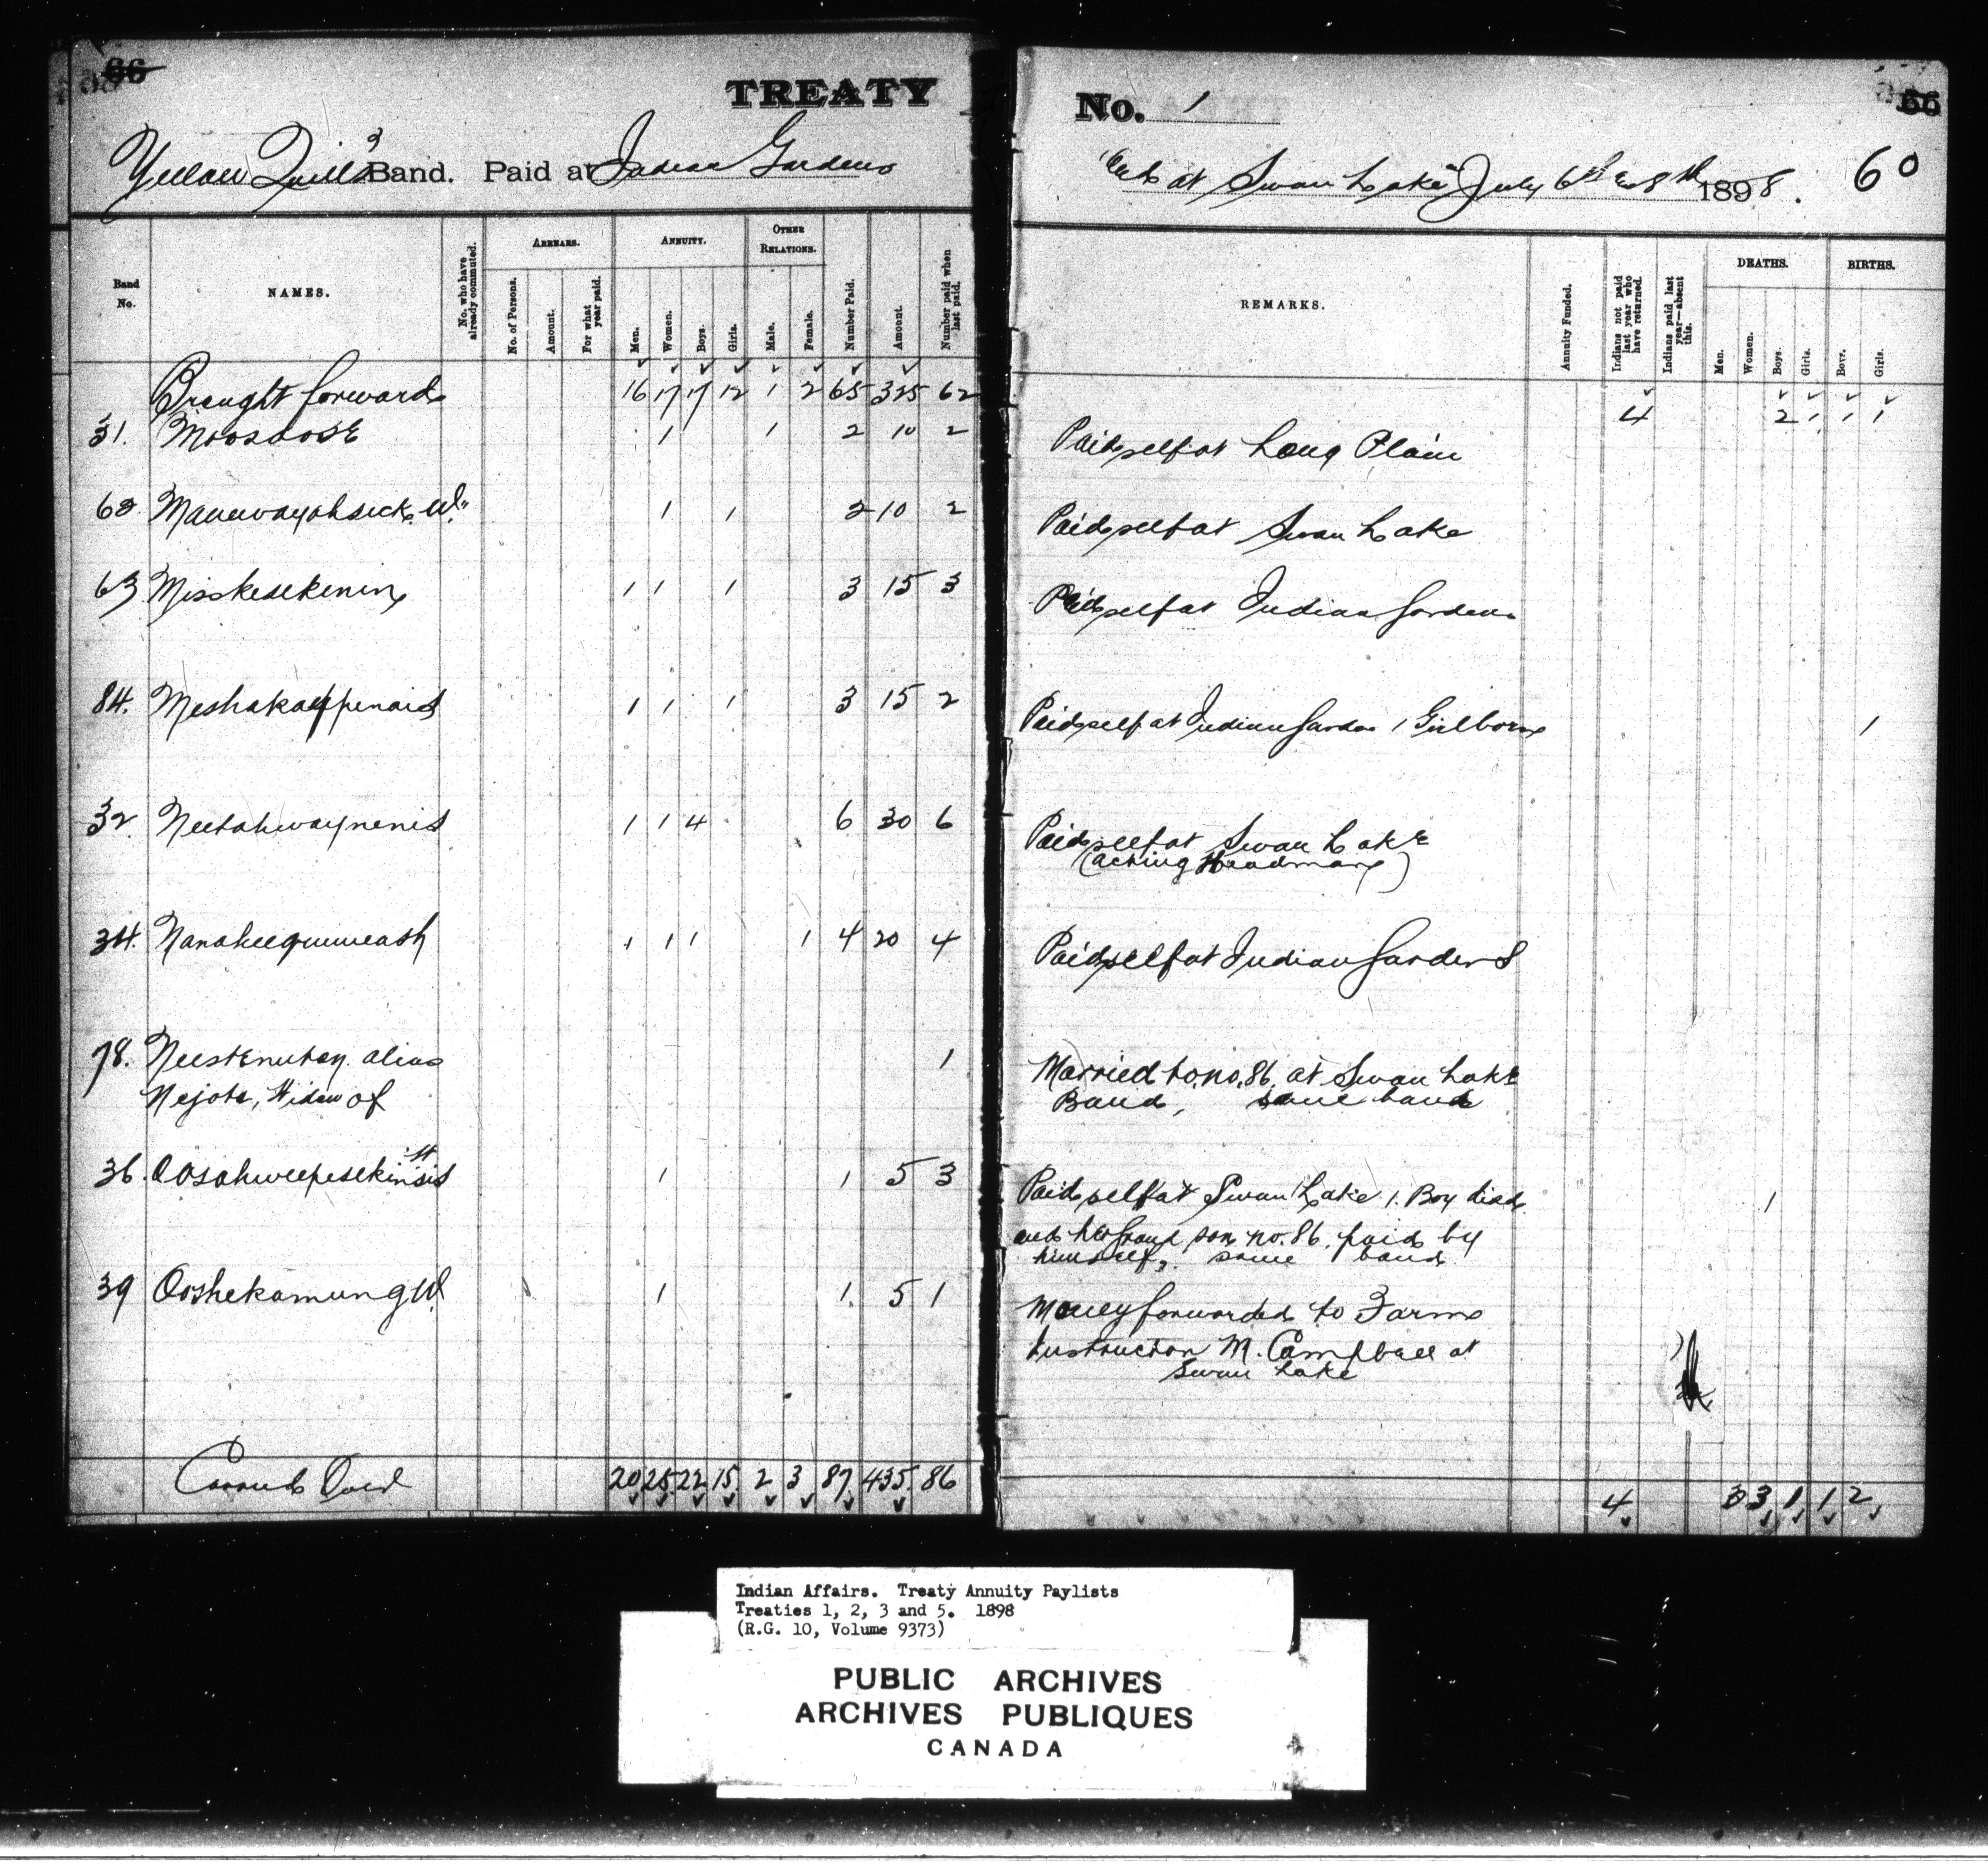 66
TREATY
Yellow Quill's Band. Paid at Indian Gardens
Band No.
NAMES.
No. who have already commuted.
ARREARS.
No. of Persons.
Amount.
For what year paid.
ANNUITY.
Men.
Women.
Boys.
Girls.
OTHER RELATIONS.
Male.
Female.
Number Paid.
Amount.
Number paid when last paid.
Brought forward 16 17 17 12 1 2 65 325 62
31. Moosoose 1 1 2 10 2
62 1 1 2 10 2
63 Misskesekenin 1 1 1 3 15 3
84. Meshakaypenais 1 1 1 3 15 2
32. Neetahwaynenis 1 1 4 6 30 6
34. 1 1 1 1 4 20 4
78. alias 1
Nejote, Widow of
36. Oosahweepesekinsis 1 1 5 3
39 Ooshekamung Wd. 1 1. 5 1
Carried Over 20 25 22 15 2 3 87 435 86
No. 1
66
and at Swan Lake July 6th & 8th 1898. 60
REMARKS.
Annuity Funded.
Indians not paid last year who have returned.
Indians paid last year—absent this.
DEATHS.
Men.
Women.
Boys.
Girls.
BIRTHS.
Boys.
Girls.
4 2 1 1 1
Paid self at Long Plain
Paid self at Swan Lake
Paid self at Indian Gardens
Paid self at Indian Gardens 1 Girl born 1
Paid self at Swan Lake
(acting Headman)
Paid self at Indian Gardens
Married to no. 86. at Swan Lake
Band, same band
Paid self at Swan Lake 1. Boy died 1
and her Grand son no. 86. paid by
himself, same band
Money forwarded to Farm
Instructor M. Campbell at
Swan Lake
4 3 3 1 1 2
Indian Affairs. Treaty Annuity Paylists
Treaties 1, 2, 3 and 5. 1898
(R.G. 10, Volume 9373)
PUBLIC ARCHIVES
ARCHIVES PUBLIQUES
CANADA